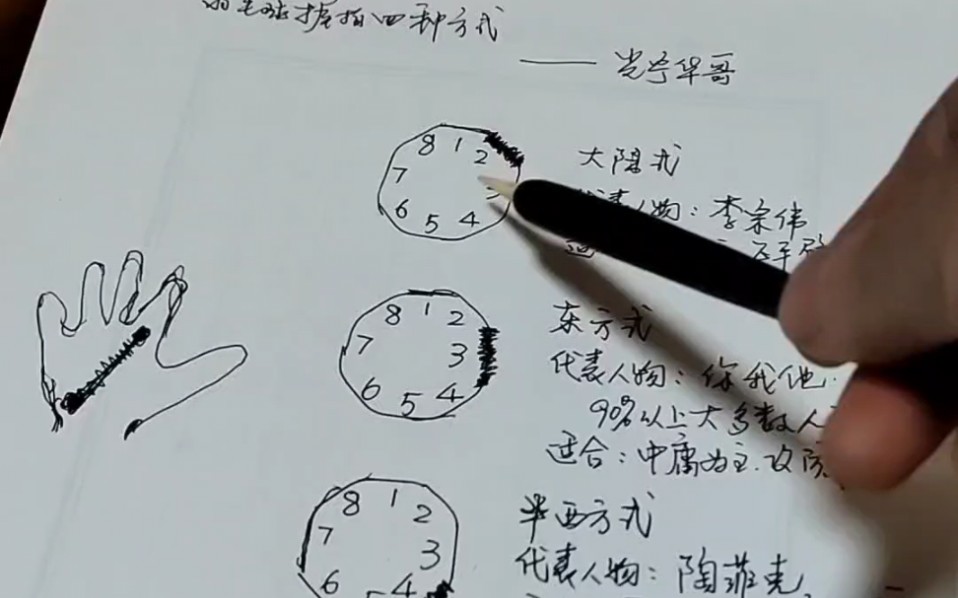 羽毛球握拍四种方式
—— 光宇华哥
8 1 2 7 6 5 4 3
大陆式
代表人物：李宗伟
适
8 1 2 7 3 6 5 4
东方式
代表人物：你我他
90%以上大多数人
适合：中庸为主．攻防
8 1 2 7 3 6 5 4
半西方式
代表人物：陶菲克